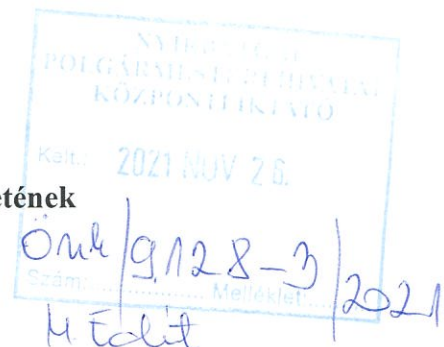 POLGÁRMESTERI HIVATAL
KÖZPONTI IKTATÓ
Kelt.: 2021 NOV 26.
etének
Önk/9128-3/2021
Szám: Melléklet:
M. Edit